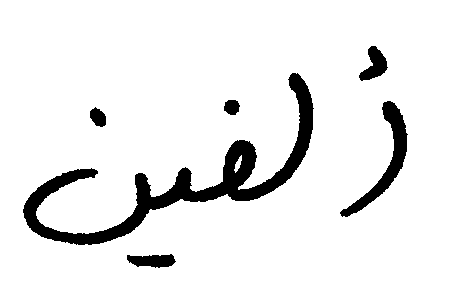 دُلفين